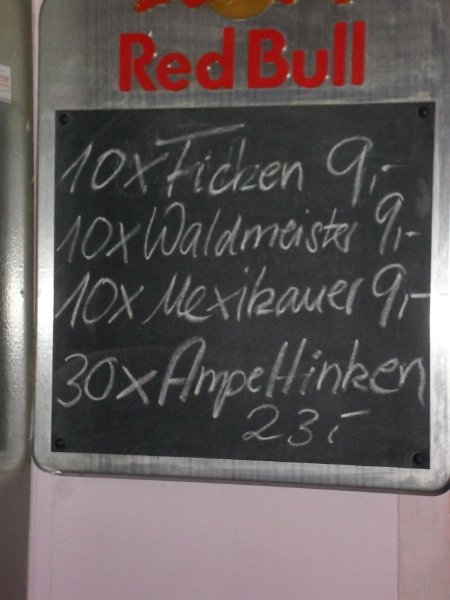 Red Bull
10x Ficken 9,-
10x Waldmeister 9,-
10x Mexikaner 9,-
30x Ampeltinken
23,-